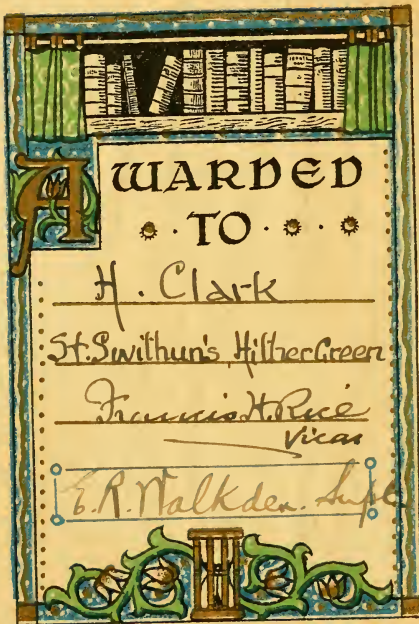 AWARDED
TO
H. Clark
St. Swithun's, Hither Green
Francis H. Rice
Vicar
E. R. Walkden. Supt